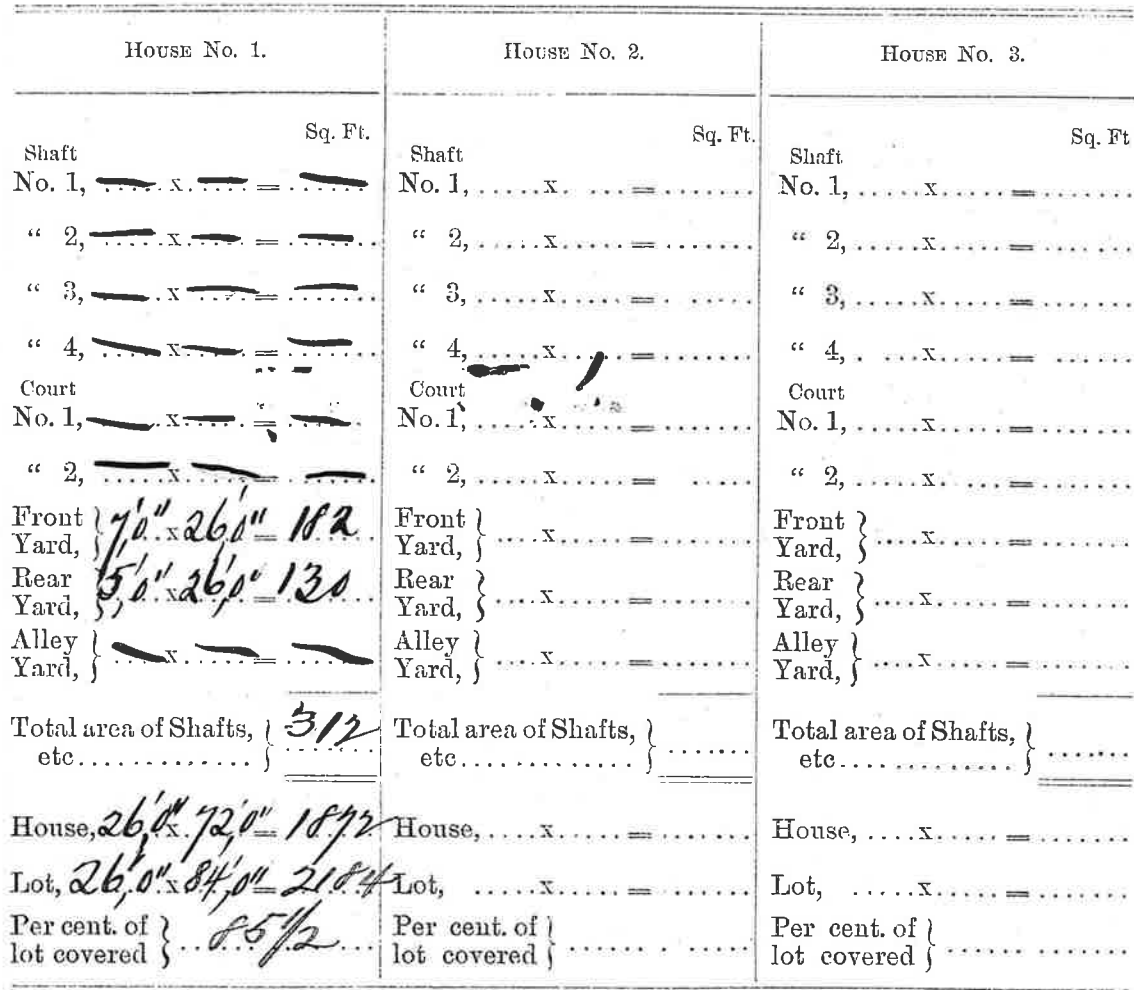 HOUSE No. 1.
Sq. Ft.
Shaft
No. 1, — x — = —
“ 2, — x — = —
“ 3, — x — = —
“ 4, — x — = —
Court
No. 1, — x — = —
“ 2, — x — = —
Front Yard, } 7'0" x 26'0" = 182
Rear Yard, } 5'0" x 26'0" = 130
Alley Yard, } — x — = —
Total area of Shafts, } 312
etc..............
House, 26'0" x 72'0" = 1872
Lot, 26'0" x 84'0" = 2184
Per cent. of } 85 1/2
lot covered
HOUSE No. 2.
Sq. Ft.
Shaft
No. 1, ..... x. ... = .......
“ 2, ..... x..... = .......
“ 3, ..... x..... = . .....
“ 4, ..... x..... = .......
Court
No. 1, ..... x..... = .......
“ 2, ..... x..... = . .....
Front Yard, } .... x..... = .......
Rear Yard, } .... x..... = .......
Alley Yard, } .... x..... = .......
Total area of Shafts, } ......
etc..............
House, .... x..... = .......
Lot, ..... x..... = .......
Per cent. of } ...... ......
lot covered
HOUSE No. 3.
Sq. Ft
Shaft
No. 1, ..... x..... = .......
“ 2, ..... x..... = .......
“ 3, ..... x..... = .......
“ 4, . ... x..... = .......
Court
No. 1, ..... x..... = .......
“ 2, ..... x..... = .......
Front Yard, } .... x..... = .......
Rear Yard, } .... x..... = .......
Alley Yard, } .... x..... = .......
Total area of Shafts, } ......
etc..............
House, .... x..... = .......
Lot, ..... x..... = .......
Per cent. of } ...... ......
lot covered